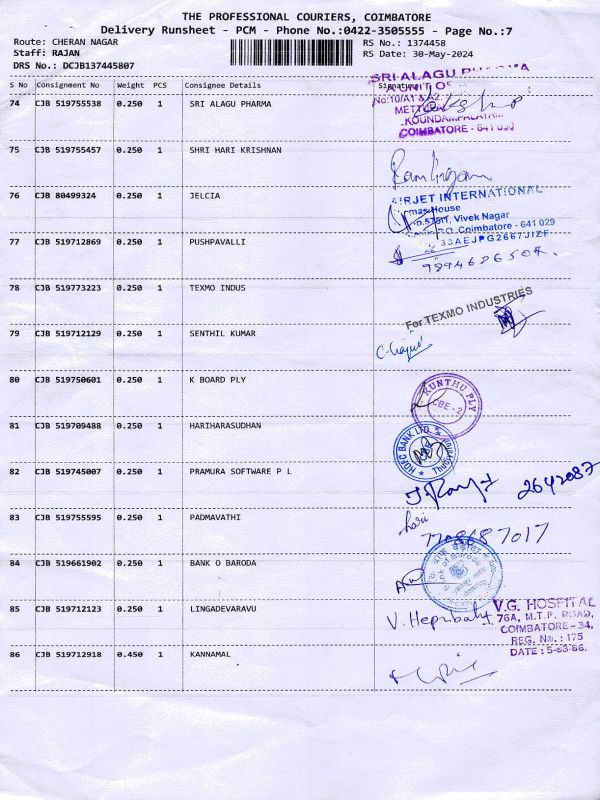 THE PROFESSIONAL COURIERS, COIMBATORE
Delivery Runsheet - PCM - Phone No.:0422-3505555 - Page No.:7
Route: CHERAN NAGAR
RS No.: 1374458
Staff: RAJAN
RS Date: 30-May-2024
DRS No.: DCJB137445807
S No Consignment No Weight PCS Consignee Details Signature
SRI ALAGU PHARMA
A UNIT OF
74 CJB 519755538 0.250 1 SRI ALAGU PHARMA
No:10/A1 & A2
METTU
KOUNDAMPALAYAM
COIMBATORE - 641 030
75 CJB 519755457 0.250 1 SHRI HARI KRISHNAN
Ramlingam
76 CJB 80499324 0.250 1 JELCIA
AIRJET INTERNATIONAL
House
Vivek Nagar
Coimbatore - 641 029
77 CJB 519712869 0.250 1 PUSHPAVALLI
33AEJPG2667J1ZF
78 CJB 519773223 0.250 1 TEXMO INDUS
For TEXMO INDUSTRIES
79 CJB 519712129 0.250 1 SENTHIL KUMAR
80 CJB 519750601 0.250 1 K BOARD PLY
KUNTHU PLY
CBE - 2
81 CJB 519709488 0.250 1 HARIHARASUDHAN
HDFC BANK LTD.
82 CJB 519745007 0.250 1 PRAMURA SOFTWARE P L
2642087
83 CJB 519755595 0.250 1 PADMAVATHI
hari
7708687017
84 CJB 519661902 0.250 1 BANK O BARODA
Bank of Baroda
85 CJB 519712123 0.250 1 LINGADEVARAVU
V. Hepzibah
V.G. HOSPITAL
76A, M.T.P. ROAD,
COIMBATORE - 34.
REG. No. : 175
DATE : 5-03-86.
86 CJB 519712918 0.450 1 KANNAMAL